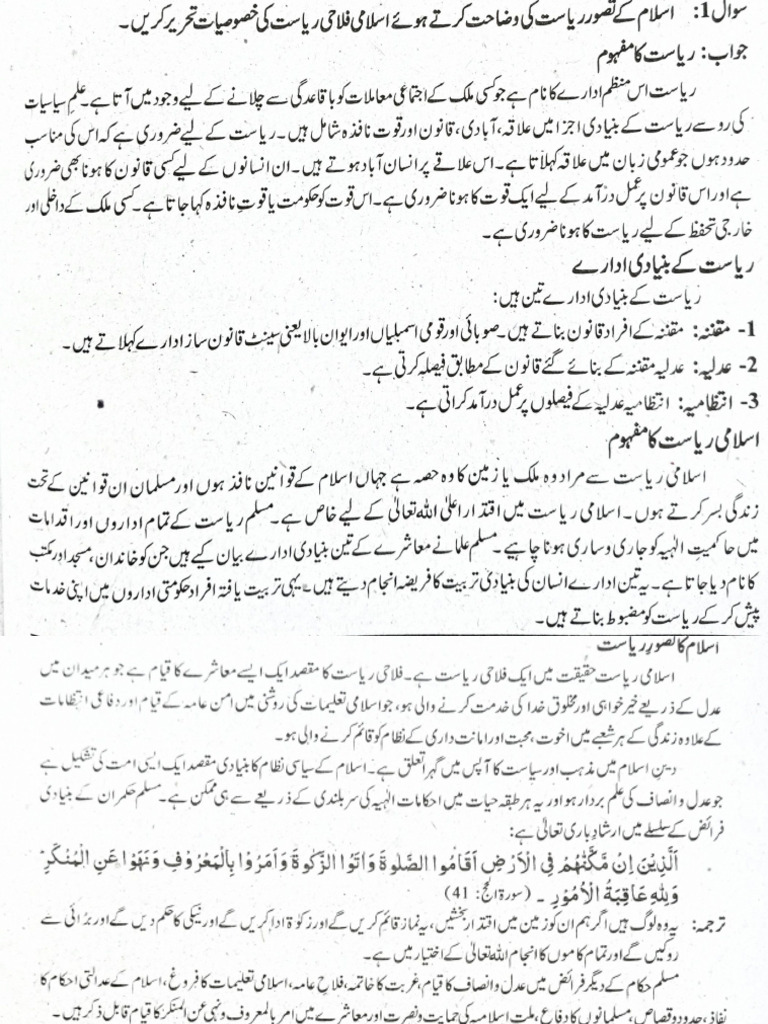 سوال 1: اسلام کے تصور ریاست کی وضاحت کرتے ہوئے اسلامی فلاحی ریاست کی خصوصیات تحریر کریں۔
جواب: ریاست کا مفہوم
ریاست اس منظم ادارے کا نام ہے جو کسی ملک کے اجتماعی معاملات کو باقاعدگی سے چلانے کے لیے وجود میں آتا ہے۔ علم سیاسیات
کی رو سے ریاست کے بنیادی اجزا میں علاقہ، آبادی، قانون اور قوت نافذہ شامل ہیں۔ ریاست کے لیے ضروری ہے کہ اس کی مناسب
حدود ہوں جو عمومی زبان میں علاقہ کہلاتا ہے۔ اس علاقے پر انسان آباد ہوتے ہیں۔ ان انسانوں کے لیے کسی قانون کا ہونا بھی ضروری
ہے اور اس قانون پر عمل درآمد کے لیے ایک قوت کا ہونا ضروری ہے۔ اس قوت کو حکومت یا قوتِ نافذہ کہا جاتا ہے۔ کسی ملک کے داخلی اور
خارجی تحفظ کے لیے ریاست کا ہونا ضروری ہے۔
ریاست کے بنیادی ادارے
ریاست کے بنیادی ادارے تین ہیں:
1- مقننہ: مقننہ کے افراد قانون بناتے ہیں۔ صوبائی اور قومی اسمبلیاں اور ایوان بالا یعنی سینٹ قانون ساز ادارے کہلاتے ہیں۔
2- عدلیہ: عدلیہ مقننہ کے بنائے گئے قانون کے مطابق فیصلہ کرتی ہے۔
3- انتظامیہ: انتظامیہ عدلیہ کے فیصلوں پر عمل درآمد کراتی ہے۔
اسلامی ریاست کا مفہوم
اسلامی ریاست سے مراد وہ ملک یا زمین کا وہ حصہ ہے جہاں اسلام کے قوانین نافذ ہوں اور مسلمان ان قوانین کے تحت
زندگی بسر کرتے ہوں۔ اسلامی ریاست میں اقتدار اعلیٰ اللہ تعالیٰ کے لیے خاص ہے۔ مسلم ریاست کے تمام اداروں اور اقدامات
میں حاکمیت الٰہیہ کو جاری و ساری ہونا چاہیے۔ مسلم علما نے معاشرے کے تین بنیادی ادارے بیان کیے ہیں جن کو خاندان، مسجد اور مکتب
کا نام دیا جاتا ہے۔ یہ تین ادارے انسان کی بنیادی تربیت کا فریضہ انجام دیتے ہیں۔ یہی تربیت یافتہ افراد حکومتی اداروں میں اپنی خدمات
پیش کر کے ریاست کو مضبوط بناتے ہیں۔
اسلام کا تصورِ ریاست
اسلامی ریاست حقیقت میں ایک فلاحی ریاست ہے۔ فلاحی ریاست کا مقصد ایک ایسے معاشرے کا قیام ہے جو ہر میدان میں
عدل کے ذریعے خیر خواہی اور مخلوق خدا کی خدمت کرنے والی ہو، جو اسلامی تعلیمات کی روشنی میں امن عامہ کے قیام اور دفاعی انتظامات
کے علاوہ زندگی کے ہر شعبے میں اخوت، محبت اور امانت داری کے نظام کو قائم کرنے والی ہو۔
دینِ اسلام میں مذہب اور سیاست کا آپس میں گہرا تعلق ہے۔ اسلام کے سیاسی نظام کا بنیادی مقصد ایک ایسی امت کی تشکیل ہے
جو عدل و انصاف کی علم بردار ہو اور یہ ہر طبقہ حیات میں احکامات الٰہیہ کی سربلندی کے ذریعے سے ہی ممکن ہے۔ مسلم حکمران کے بنیادی
فرائض کے سلسلے میں ارشاد باری تعالیٰ ہے:
اَلَّذِيْنَ اِنْ مَّكَّنّٰهُمْ فِی الْاَرْضِ اَقَامُوا الصَّلٰوةَ وَاٰتَوُا الزَّكٰوةَ وَاَمَرُوْا بِالْمَعْرُوْفِ وَنَهَوْا عَنِ الْمُنْكَرِ
وَلِلّٰهِ عَاقِبَةُ الْاُمُوْرِ ۔ (سورۃ الحج: 41)
ترجمہ: یہ وہ لوگ ہیں اگر ہم ان کو زمین میں اقتدار بخشیں، یہ نماز قائم کریں گے اور زکوٰۃ ادا کریں گے اور نیکی کا حکم دیں گے اور برائی سے
روکیں گے اور تمام کاموں کا انجام اللہ تعالیٰ کے اختیار میں ہے۔
مسلم حکام کے دیگر فرائض میں عدل و انصاف کا قیام، غربت کا خاتمہ، فلاح عامہ، اسلامی تعلیمات کا فروغ، اسلام کے عدالتی احکام کا
نفاذ، حدود و قصاص، مسلمانوں کا دفاع، ملت اسلامیہ کی حمایت و نصرت اور معاشرے میں امر بالمعروف و نہی عن المنکر کا قیام قابل ذکر ہیں۔